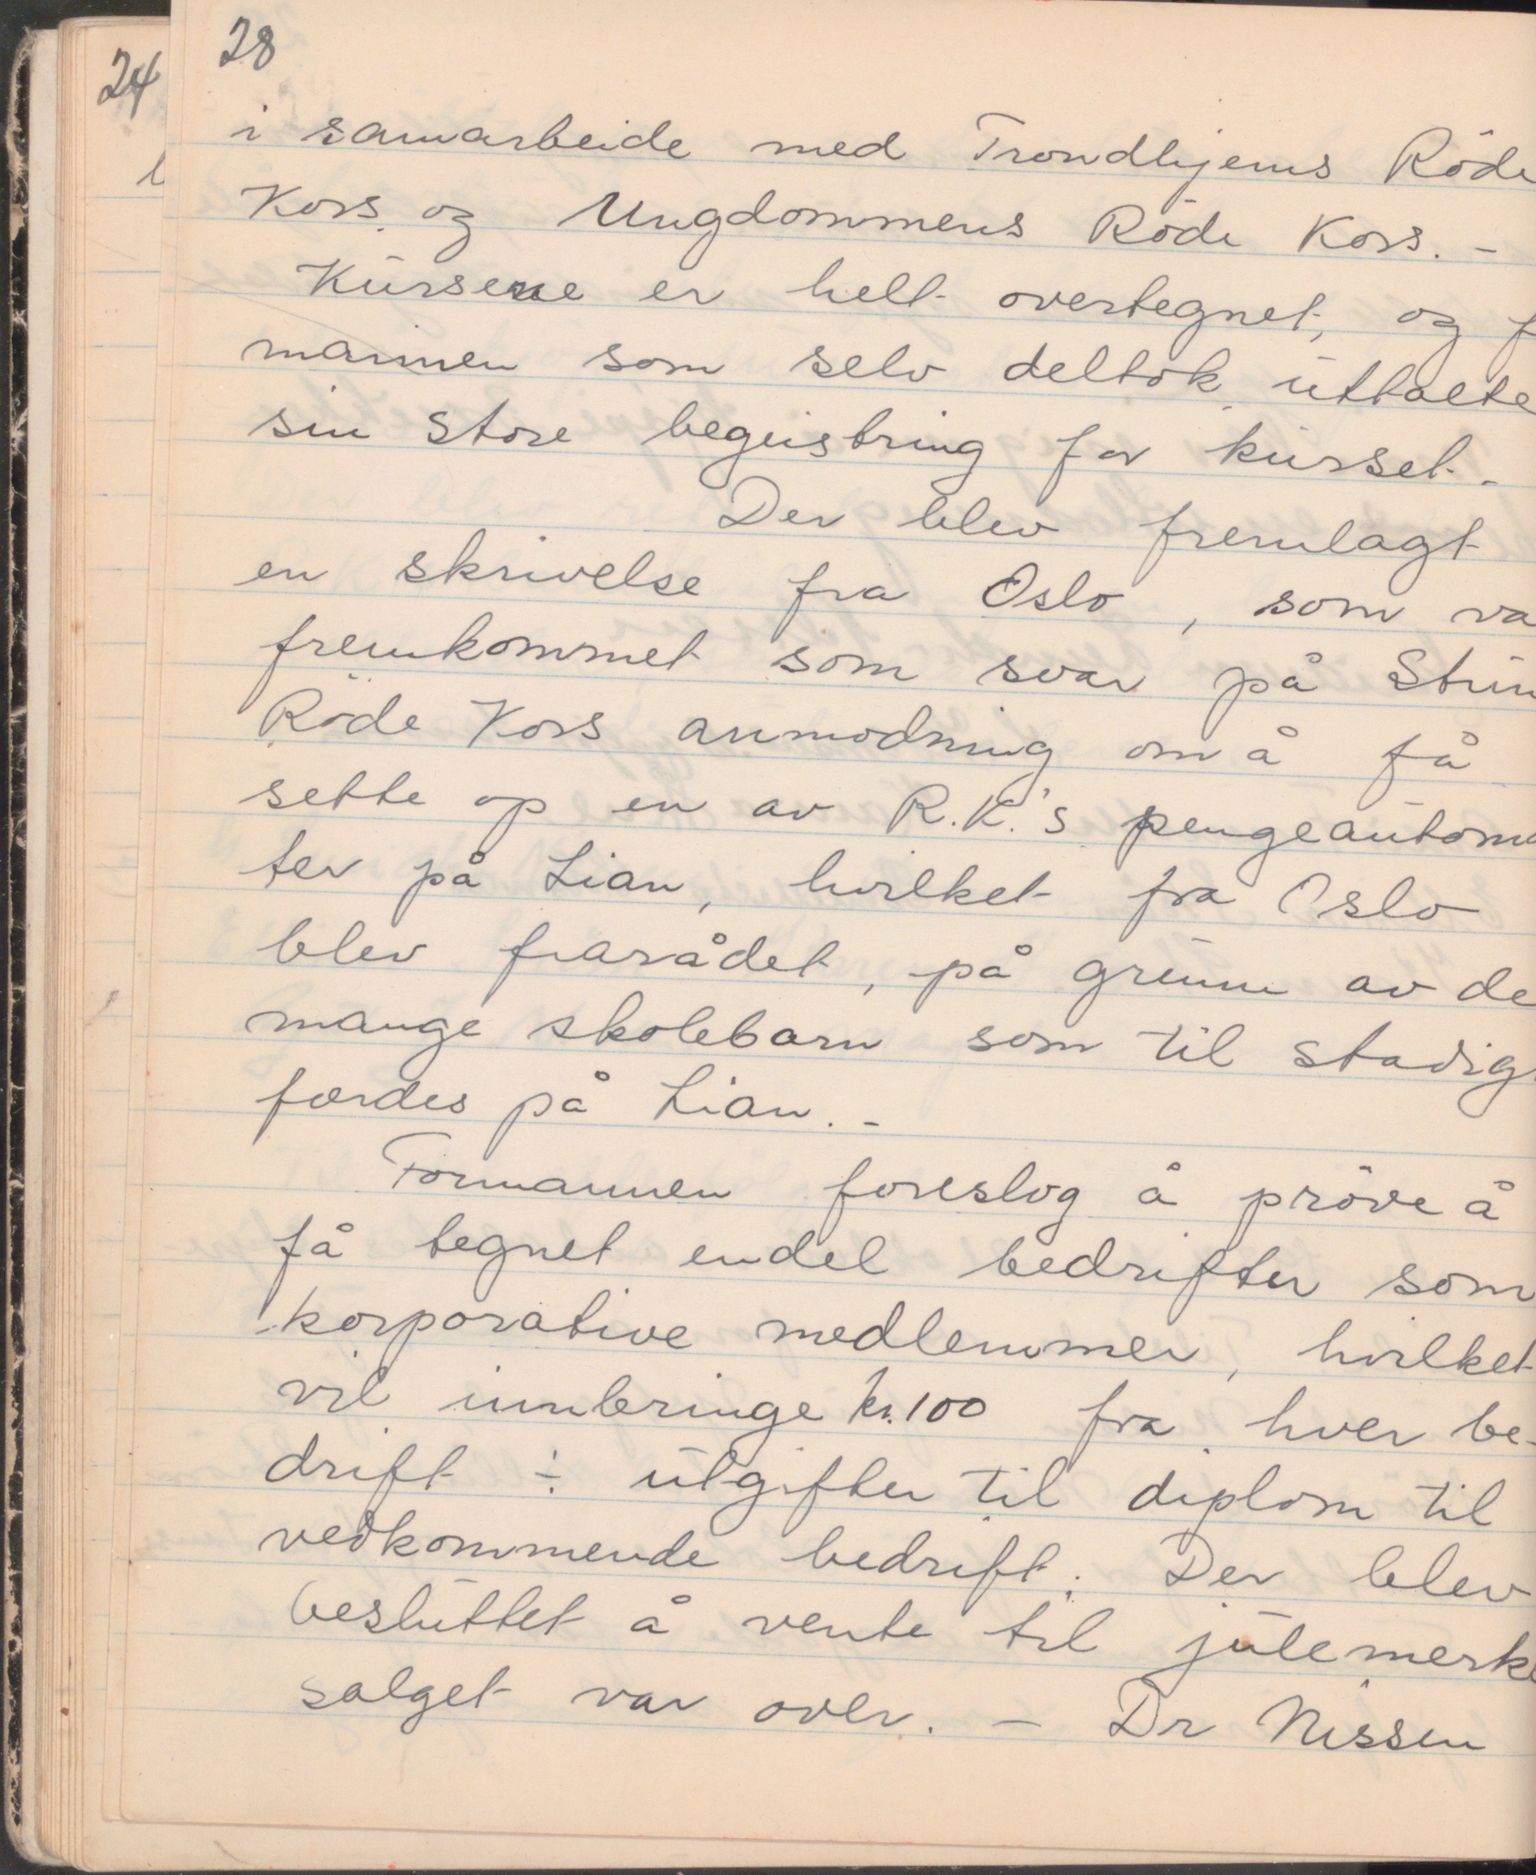 24
28
i samarbeide med Trondhjems Röde
Kors og Ungdommens Röde Kors. -
Kursene er helt overtegnet, og f
mannen som selv deltok, uttalte
sin store begeistring for kurset.
Der blev fremlagt
en skrivelse fra Oslo, som va
fremkommet som svar på Strin
Röde Kors anmodning om å få
sette op en av R.K.'s pengeautoma
ter på Lian, hvilket fra Oslo
blev frarådet, på grunn av de
mange skolebarn som til stadig
ferdes på Lian. -
Formannen foreslog å pröve å
få tegnet endel bedrifter som
korporative medlemmer, hvilket
vil innbringe kr. 100 fra hver be-
drift ÷ utgifter til diplom til
vedkommende bedrift. Der blev
besluttet å vente til julemerke
salget var over. - Dr Nissen